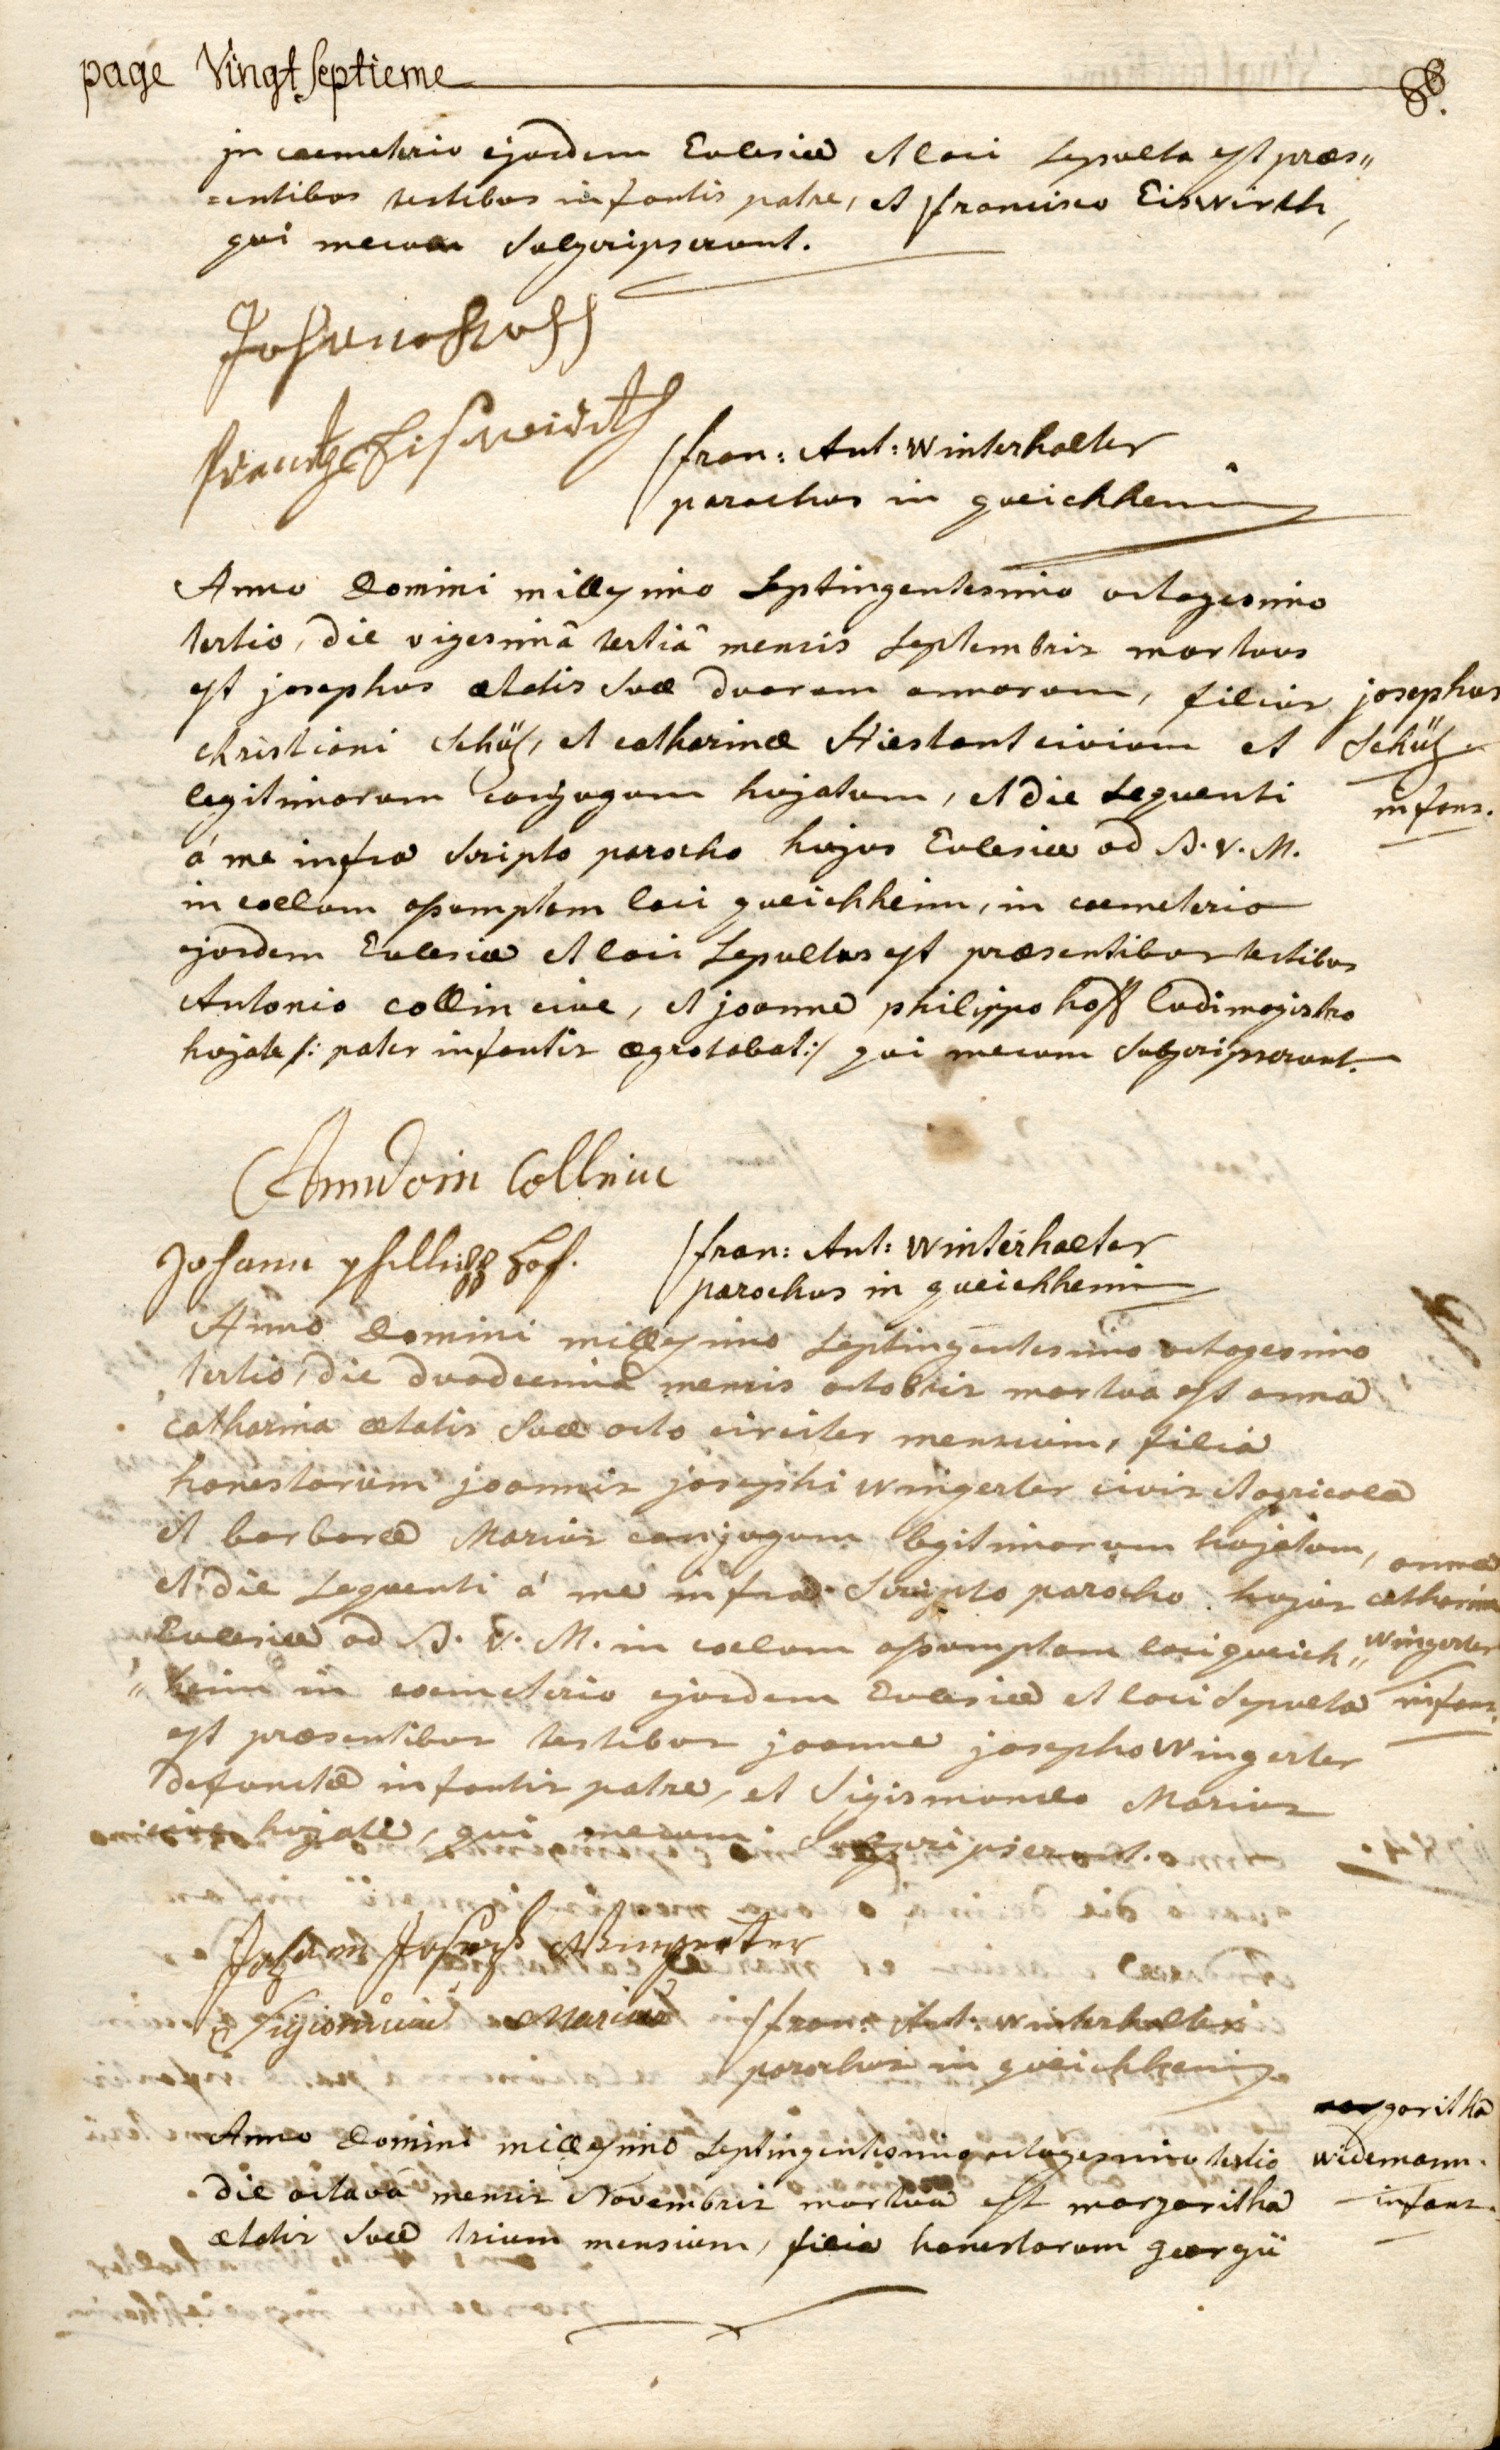 page Vingt Septieme
jn caemeterio ejusdem Ecclesiæ et loci Sepulta est præs,,
=entibus testibus infantis patre, et francisco Eiswirth,
qui mecum Subscripserunt.
frantz Eisweirth
fran: Ant: Winterhalter
parochus in queichheim
Anno Domini millesimo Septingentesimo octogesimo
tertio, die vigesimâ tertiâ mensis Septembris mortuus
est josephus ætatis Suæ duorum annorum, filius
christiani Schütz, et catharinæ Hiestant civium et
legitimorum conjugum hujatum, et die Sequenti
á me infra Scripto parocho hujus Ecclesiæ ad B. V. M.
in coelum assumptam loci queichheim, in caemeterio
ejusdem Ecclesiæ et loci Sepultus est præsentibus testibus
Antonio Collin cive, et joanne philippo hoff ludimagistro
hujate /: pater infantis ægrotabat :/ qui mecum Subscripserunt.
josephus
Schütz
infans.
Collin
Johann philipp Hof.
fran: Ant: Winterhalter
parochus in queichheim
Anno Domini millesimo Septingentesimo octogesimo
tertio, die duodecima mensis octobris mortua est anna
catharina ætatis Suæ octo circiter mensium, filia
honestorum joannis josephi Wingerter civis et agricolæ
et barbaræ Marius conjugum legitimorum hujatum,
et die Sequenti á me infra Scripto parocho hujus
Ecclesiæ ad B. V. M. in coelum assumptam loci queich,,
,,heim in coemeterio ejusdem Ecclesiæ et loci Sepulta
est præsentibus testibus joanne josepho Wingerter
defunctæ infantis patre, et Sigismundo Marius
cive hujate, qui mecum Subscripserunt.
anna
catharina
Wingerter
infans.
Johann Joseph Wingerter
Marius
fran: Ant: Winterhalter
parochus in queichheim
Anno Domini millesimo Septingentesimo octogesimo tertio
die octavâ mensis Novembris mortua est margaritha
ætatis Suæ trium mensium, filia honestorum georgii
margaritha
widemann.
infans.